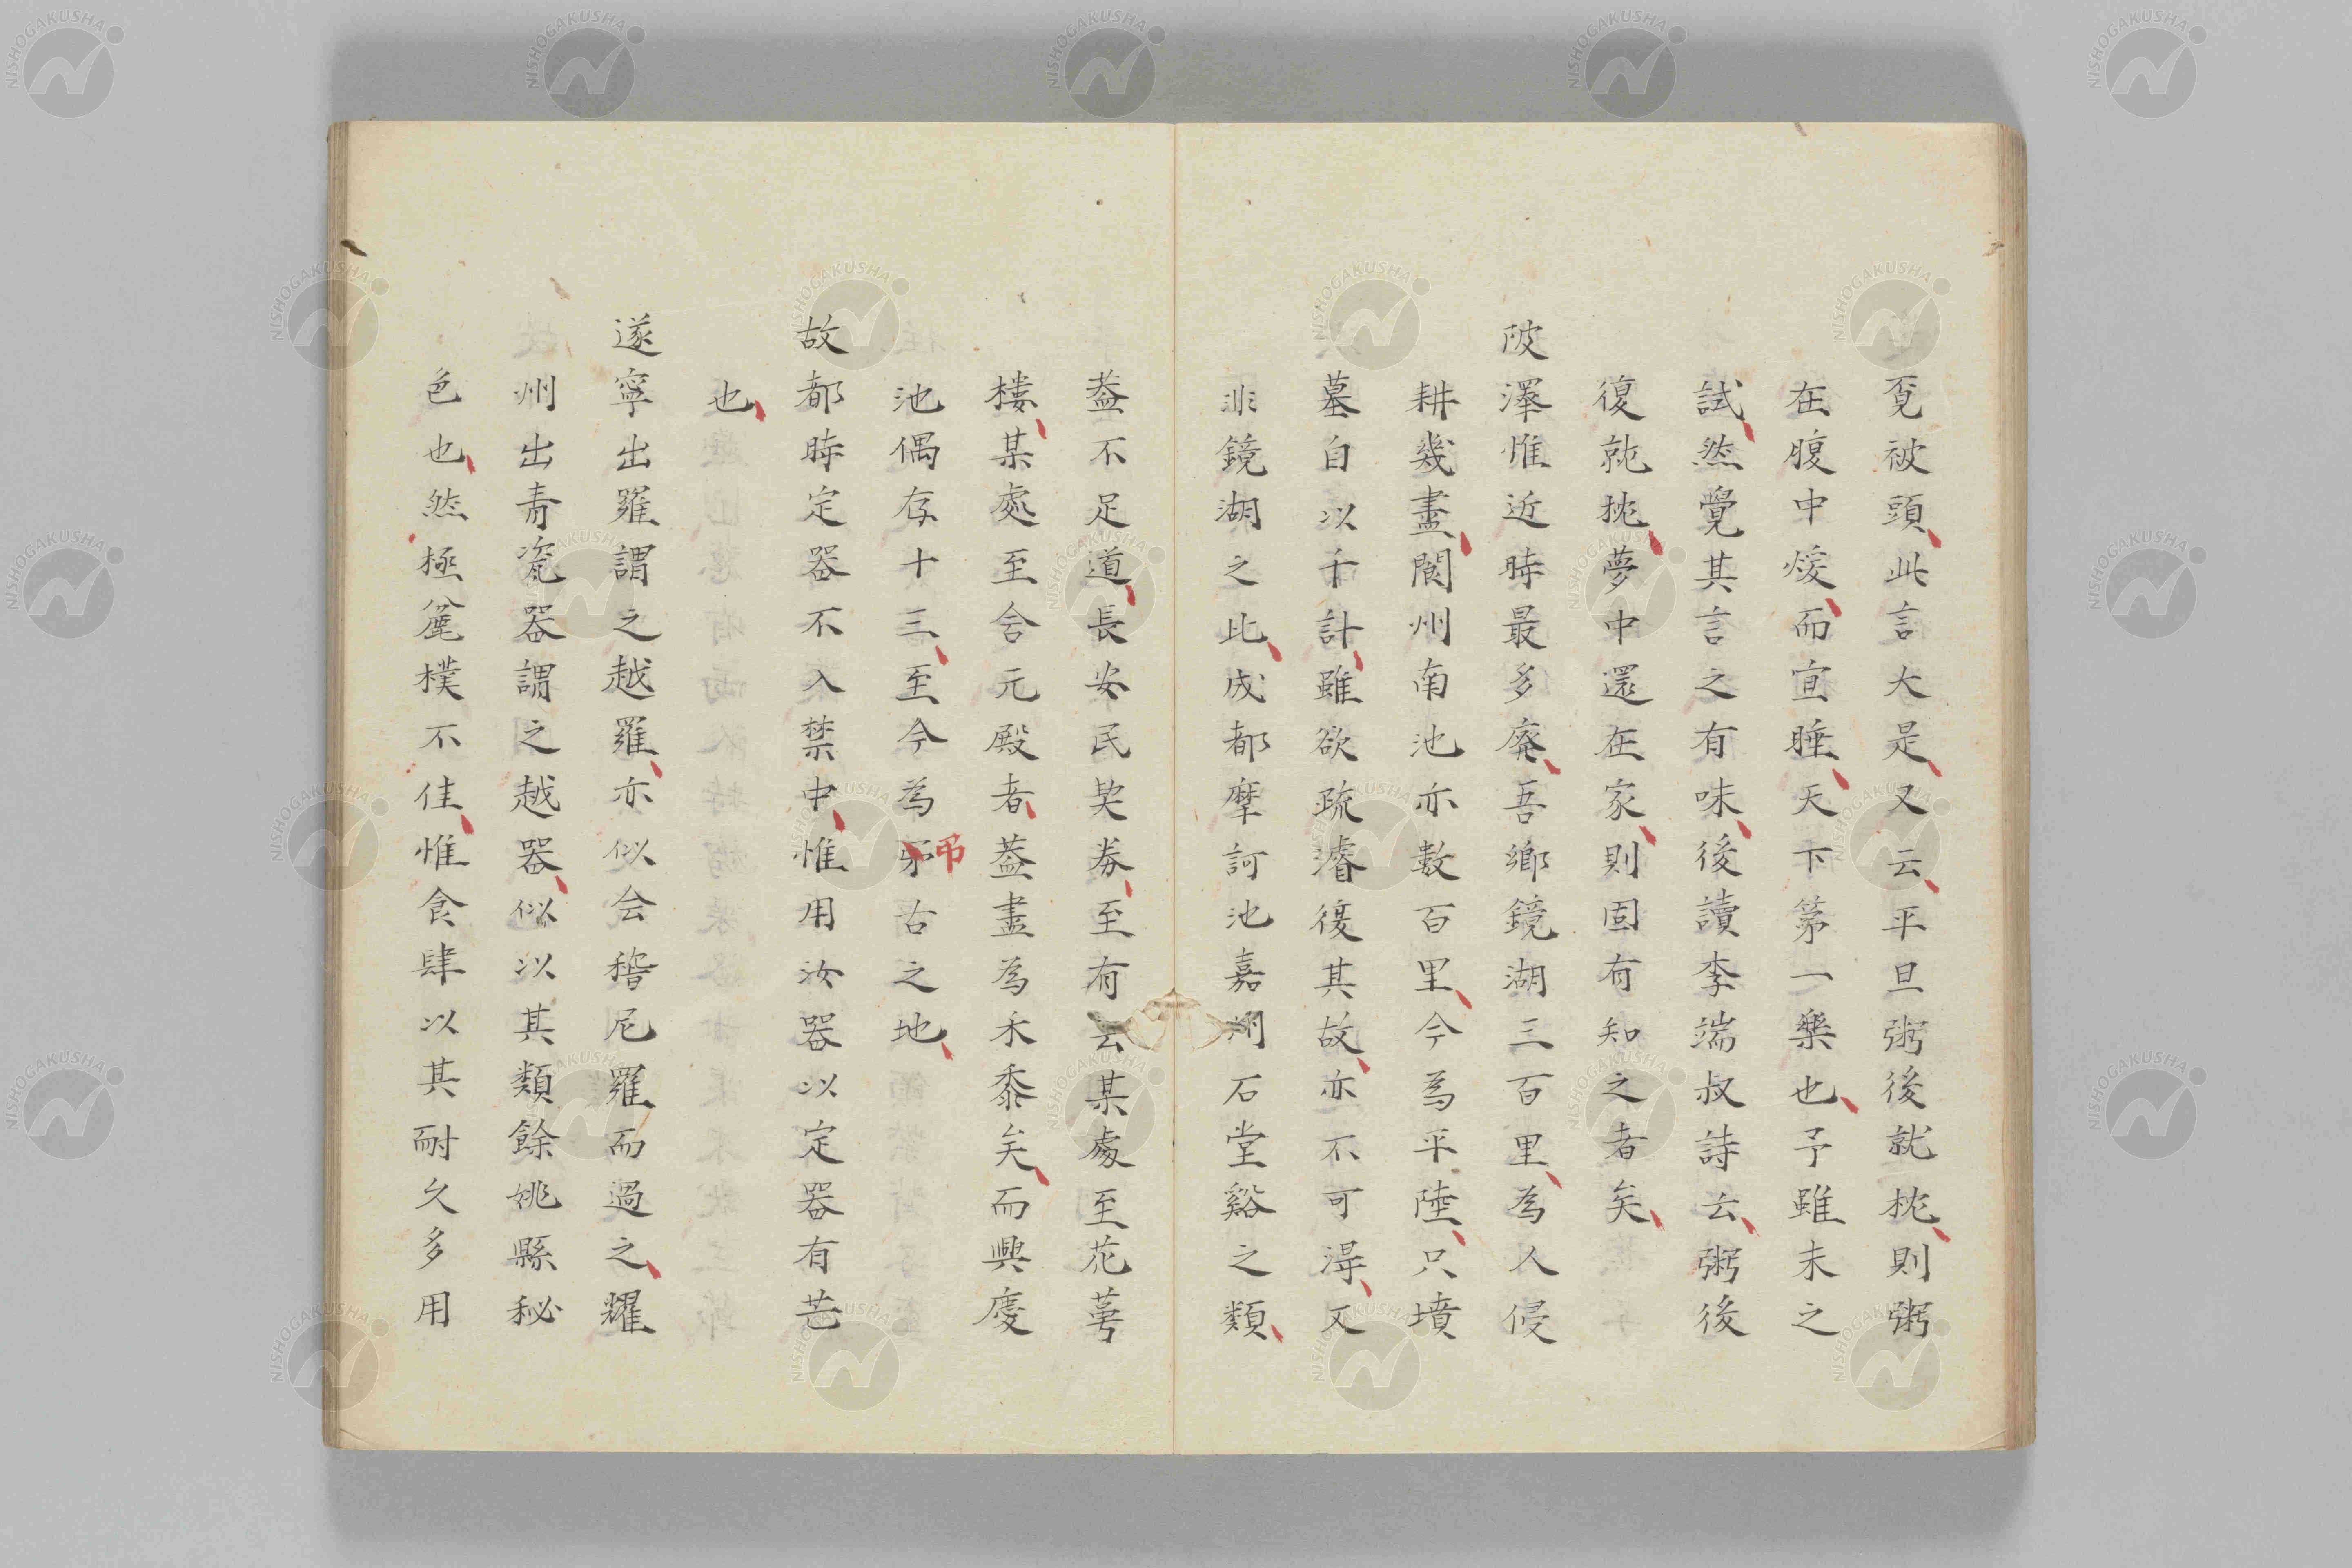 覔被頭此言大是又云平旦粥後就枕則粥
在腹中煖而宜睡天下第一樂也予雖未之
試然覺其言之有味後讀李端叔詩云粥後
復就枕夢中還在家則固有知之者矣
陂澤惟近時最多廢吾鄉鏡湖三百里為人侵
耕幾盡閬州南池亦數百里今為平陸只墳
墓自以千計雖欲疏濬復其故亦不可得又
非鏡湖之比成都摩訶池嘉州石堂谿之類
蓋不足道長安民契券至有云某處至花萼
樓某處至含元殿者蓋盡為禾黍矣而興慶
池偶存十三至今為弔古之地
吊
故都時定器不入禁中惟用汝器以定器有芒
也
遂寧出羅謂之越羅亦似会稽尼羅而過之耀
州出青瓷器謂之越器似以其類餘姚縣秘
色也然極麄樸不佳惟食肆以其耐久多用
NISHOGAKUSHA